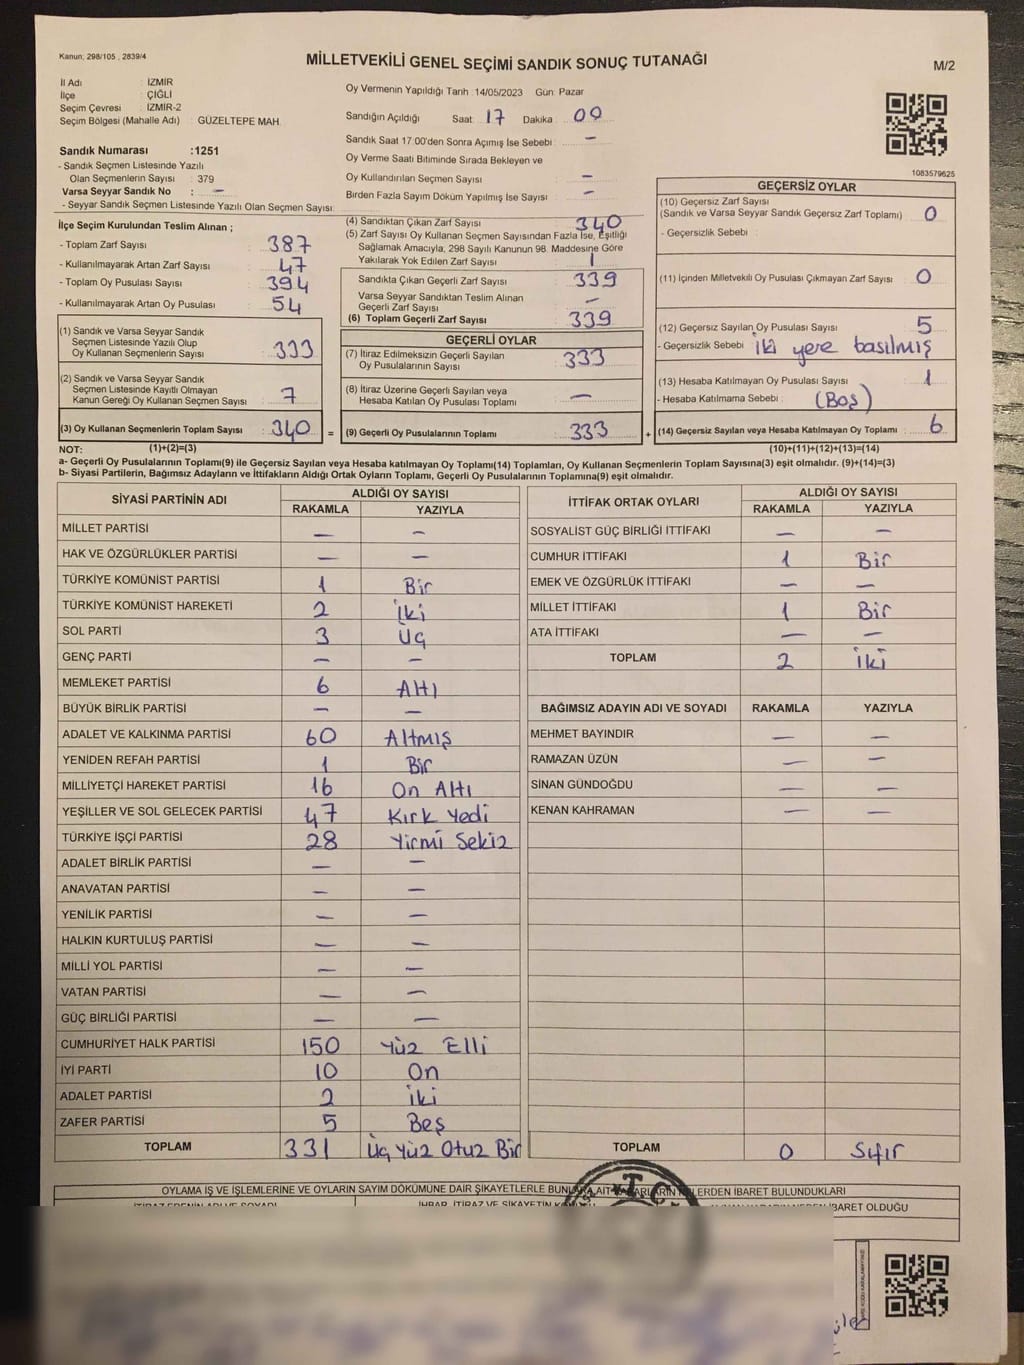 Kanun; 298/105 , 2839/4
MİLLETVEKİLİ GENEL SEÇİMİ SANDIK SONUÇ TUTANAĞI
M/2
İl Adı : İZMİR
İlçe : ÇİĞLİ
Seçim Çevresi : İZMİR-2
Seçim Bölgesi (Mahalle Adı) : GÜZELTEPE MAH.
Sandık Numarası :1251
- Sandık Seçmen Listesinde Yazılı
Olan Seçmenlerin Sayısı : 379
Varsa Seyyar Sandık No : -
- Seyyar Sandık Seçmen Listesinde Yazılı Olan Seçmen Sayısı:
Oy Vermenin Yapıldığı Tarih :14/05/2023 Gün: Pazar
Sandığın Açıldığı Saat : 17 Dakika : 09
Sandık Saat 17:00'den Sonra Açımış İse Sebebi : -
Oy Verme Saati Bitiminde Sırada Bekleyen ve
Oy Kullandırılan Seçmen Sayısı : -
Birden Fazla Sayım Döküm Yapılmış İse Sayısı : -
1083579625
İlçe Seçim Kurulundan Teslim Alınan ;
- Toplam Zarf Sayısı : 387
- Kullanılmayarak Artan Zarf Sayısı : 47
- Toplam Oy Pusulası Sayısı : 394
- Kullanılmayarak Artan Oy Pusulası : 54
(1) Sandık ve Varsa Seyyar Sandık
Seçmen Listesinde Yazılı Olup
Oy Kullanan Seçmenlerin Sayısı : 333
(2) Sandık ve Varsa Seyyar Sandık
Seçmen Listesinde Kayıtlı Olmayan
Kanun Gereği Oy Kullanan Seçmen Sayısı : 7
(3) Oy Kullanan Seçmenlerin Toplam Sayısı : 340
(4) Sandıktan Çıkan Zarf Sayısı : 340
(5) Zarf Sayısı Oy Kullanan Seçmen Sayısından Fazla İse, Eşitliği
Sağlamak Amacıyla, 298 Sayılı Kanunun 98. Maddesine Göre
Yakılarak Yok Edilen Zarf Sayısı : 1
Sandıkta Çıkan Geçerli Zarf Sayısı : 339
Varsa Seyyar Sandıktan Teslim Alınan
Geçerli Zarf Sayısı : -
(6) Toplam Geçerli Zarf Sayısı : 339
GEÇERLİ OYLAR
(7) İtiraz Edilmeksizin Geçerli Sayılan
Oy Pusulalarının Sayısı : 333
(8) İtiraz Üzerine Geçerli Sayılan veya
Hesaba Katılan Oy Pusulası Toplamı : -
= (9) Geçerli Oy Pusulalarının Toplamı : 333
GEÇERSİZ OYLAR
(10) Geçersiz Zarf Sayısı
(Sandık ve Varsa Seyyar Sandık Geçersiz Zarf Toplamı) : 0
- Geçersizlik Sebebi :
(11) İçinden Milletvekili Oy Pusulası Çıkmayan Zarf Sayısı : 0
(12) Geçersiz Sayılan Oy Pusulası Sayısı : 5
- Geçersizlik Sebebi : iki yere basılmış
(13) Hesaba Katılmayan Oy Pusulası Sayısı : 1
- Hesaba Katılmama Sebebi : (Boş)
+ (14) Geçersiz Sayılan veya Hesaba Katılmayan Oy Toplamı : 6
NOT: (1)+(2)=(3) (10)+(11)+(12)+(13)=(14)
a- Geçerli Oy Pusulalarının Toplamı(9) ile Geçersiz Sayılan veya Hesaba katılmayan Oy Toplamı(14) Toplamları, Oy Kullanan Seçmenlerin Toplam Sayısına(3) eşit olmalıdır. (9)+(14)=(3)
b- Siyasi Partilerin, Bağımsız Adayların ve İttifakların Aldığı Ortak Oyların Toplamı, Geçerli Oy Pusulalarının Toplamına(9) eşit olmalıdır.
SİYASİ PARTİNİN ADI ALDIĞI OY SAYISI
RAKAMLA YAZIYLA
MİLLET PARTİSİ - -
HAK VE ÖZGÜRLÜKLER PARTİSİ - -
TÜRKİYE KOMÜNİST PARTİSİ 1 Bir
TÜRKİYE KOMÜNİST HAREKETİ 2 İki
SOL PARTİ 3 Üç
GENÇ PARTİ - -
MEMLEKET PARTİSİ 6 Altı
BÜYÜK BİRLİK PARTİSİ - -
ADALET VE KALKINMA PARTİSİ 60 Altmış
YENİDEN REFAH PARTİSİ 1 Bir
MİLLİYETÇİ HAREKET PARTİSİ 16 On Altı
YEŞİLLER VE SOL GELECEK PARTİSİ 47 Kırk Yedi
TÜRKİYE İŞÇİ PARTİSİ 28 Yirmi Sekiz
ADALET BİRLİK PARTİSİ - -
ANAVATAN PARTİSİ - -
YENİLİK PARTİSİ - -
HALKIN KURTULUŞ PARTİSİ - -
MİLLİ YOL PARTİSİ - -
VATAN PARTİSİ - -
GÜÇ BİRLİĞİ PARTİSİ - -
CUMHURİYET HALK PARTİSİ 150 Yüz Elli
İYİ PARTİ 10 On
ADALET PARTİSİ 2 İki
ZAFER PARTİSİ 5 Beş
TOPLAM 331 Üç Yüz Otuz Bir
İTTİFAK ORTAK OYLARI ALDIĞI OY SAYISI
RAKAMLA YAZIYLA
SOSYALİST GÜÇ BİRLİĞİ İTTİFAKI - -
CUMHUR İTTİFAKI 1 Bir
EMEK VE ÖZGÜRLÜK İTTİFAKI - -
MİLLET İTTİFAKI 1 Bir
ATA İTTİFAKI - -
TOPLAM 2 İki
BAĞIMSIZ ADAYIN ADI VE SOYADI RAKAMLA YAZIYLA
MEHMET BAYINDIR - -
RAMAZAN ÜZÜN - -
SİNAN GÜNDOĞDU - -
KENAN KAHRAMAN - -
TOPLAM 0 Sıfır
OYLAMA İŞ VE İŞLEMLERİNE VE OYLARIN SAYIM DÖKÜMÜNE DAİR ŞİKAYETLERLE BUNLARA AİT KARARLARIN NELERDEN İBARET BULUNDUKLARI
İHBAR, İTİRAZ VE ŞİKAYETİN
İBARET OLDUĞU
T.C.